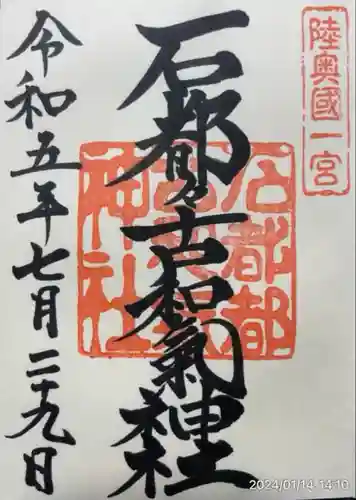 陸奥國一宮
石都々古和氣神社
石都都古和氣神社
令和五年七月二十九日
2024/01/14 14:10